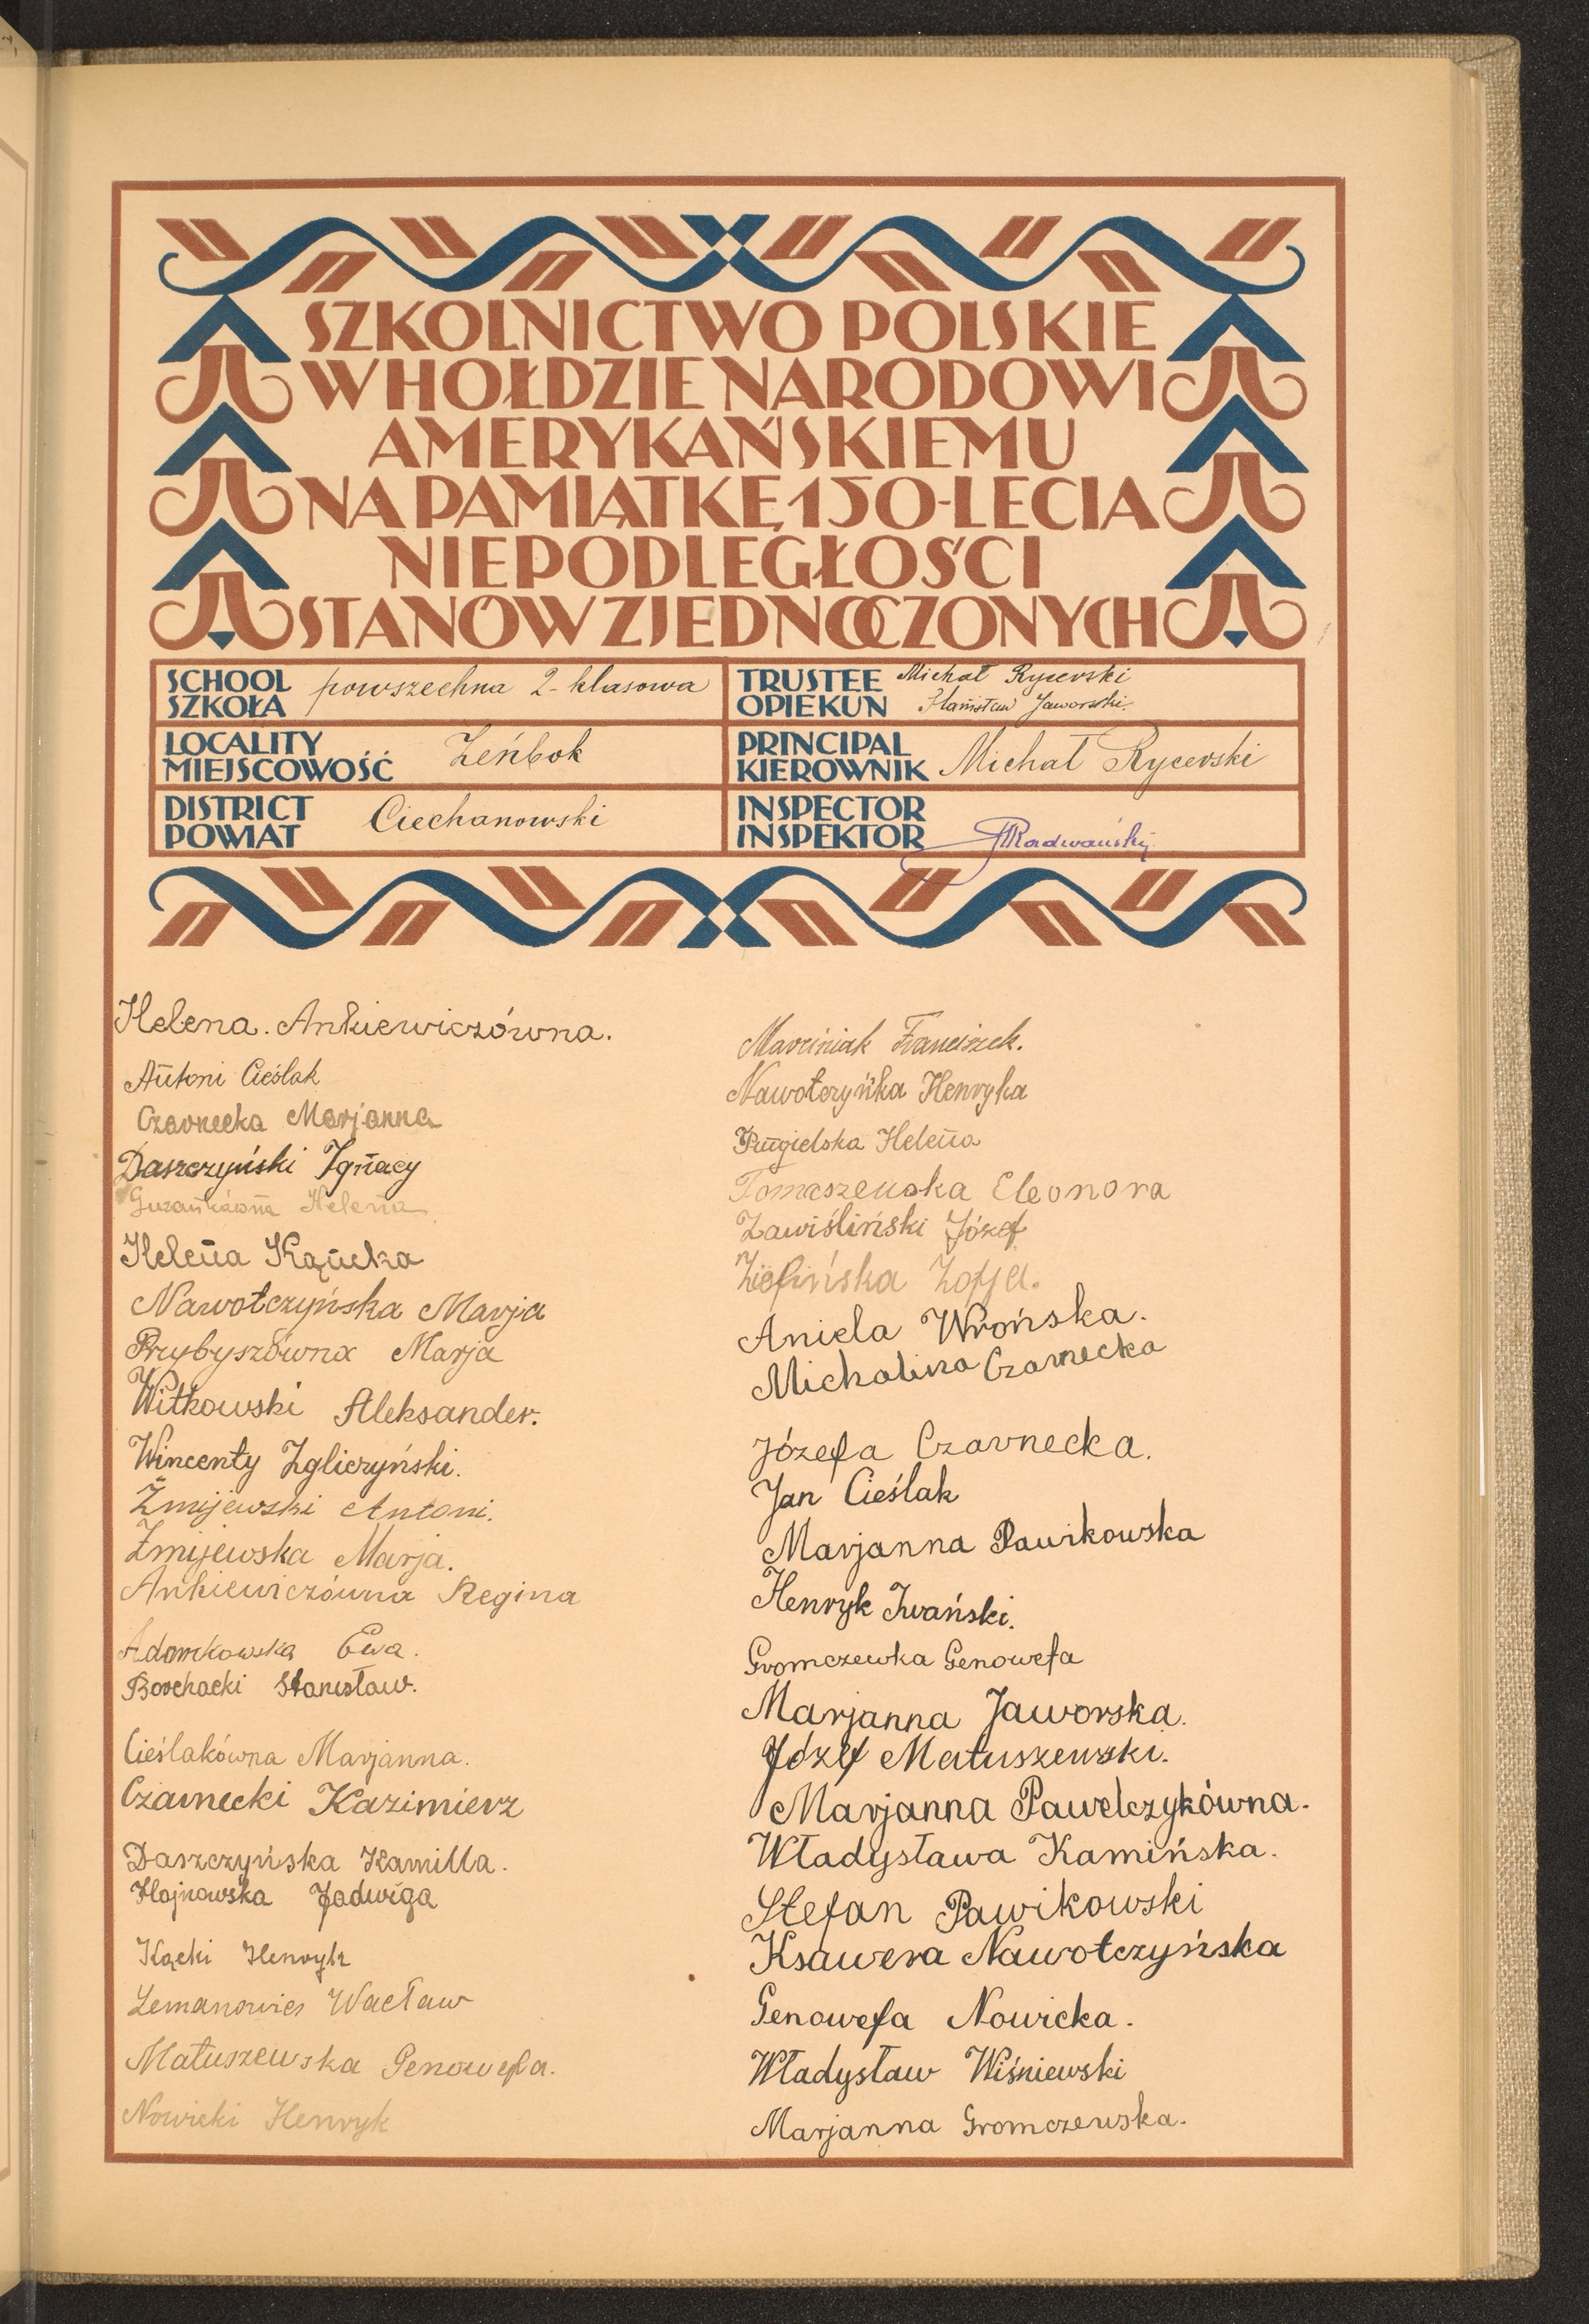 SZKOLNICTWO POLSKIE
W HOŁDZIE NARODOWI
AMERYKAŃSKIEMU
NA PAMIĄTKĘ 150-LECIA
NIEPODLEGŁOŚCI
STANÓW ZJEDNOCZONYCH
SCHOOL
SZKOŁA
powszechna 2-klasowa
TRUSTEE
OPIEKUN
Michał Rycerski
Stanisław Jaworski.
LOCALITY
MIEJSCOWOŚĆ
Zeńbok
PRINCIPAL
KIEROWNIK
Michał Rycerski
DISTRICT
POWIAT
Ciechanowski
INSPECTOR
INSPEKTOR
Radwański
Helena. Ankiewiczówna.
Antoni Cieślak
Czarnecka Marjanna
Daszczyński Ignacy
Helena
Helena Kącka
Nawotczyńska Marja
Przybyszówna Marja
Witkowski Aleksander.
Wincenty Zgliczyński.
Żmijewski Antoni.
Żmijewska Marja.
Ankiewiczówna Regina
Adamkowska Ewa.
Borchacki Stanisław.
Cieślakówna Marjanna.
Czarnecki Kazimierz
Daszczyńska Kamilla.
Hojnowska Jadwiga
Kącki Henryk
Lemanowicz Wacław
Matuszewska Genowefa.
Nowicki Henryk
Marciniak Franciszek.
Nawotczyńka Henryka
Pungielska Helena
Tomaszewska Eleonora
Zawiśliński Józef
Zielińska Zofja.
Aniela Wrońska.
Michalina Czarnecka
Józefa Czarnecka.
Jan Cieślak
Marjanna Pawikowska
Henryk Iwański.
Gromczewka Genowefa
Marjanna Jaworska.
Józef Matuszewski.
Marjanna Pawelczykówna.
Władysława Kamińska.
Stefan Pawikowski
Ksawera Nawotczyńska
Genowefa Nowicka.
Władysław Wiśniewski
Marjanna Gromczewska.